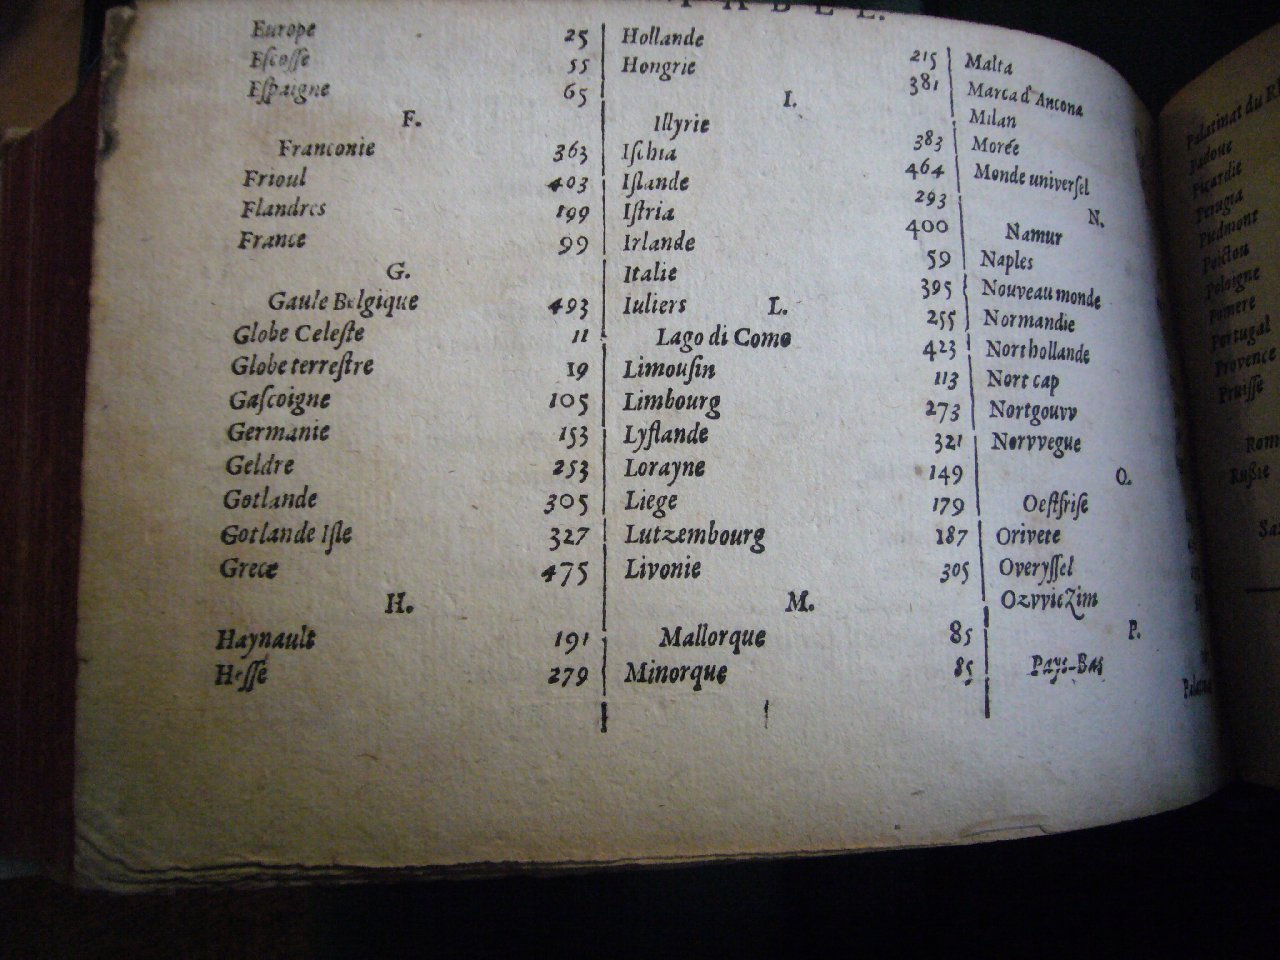 TABEL.
Europe 25
Eſcoſſe 55
Eſpaigne 65
F.
Franconie 363
Frioul 403
Flandres 199
France 99
G.
Gaule Belgique 493
Globe Celeſte 11
Globe terreſtre 19
Gaſcoigne 105
Germanie 153
Geldre 253
Gotlande 305
Gotlande Iſle 327
Grece 475
H.
Haynault 191
Heſſe 279
Hollande 215
Hongrie 381
I.
Illyrie 383
Iſchia 464
Iſlande 293
Iſtria 400
Irlande 59
Italie 395
Iuliers 255
L.
Lago di Como 423
Limouſin 113
Limbourg 273
Lyflande 321
Lorayne 149
Liege 179
Lutzembourg 187
Livonie 305
M.
Mallorque 85
Minorque 85
Malta
Marca d'Ancona
Milan
Morée
Monde univerſel
N.
Namur
Naples
Nouveau monde
Normandie
Northollande
Nort cap
Nortgouvv
Norvvegue
O.
Oeſtfriſe
Orivete
Overyſſel
OzvvieZim
P.
Pays-Bas
Palatinat du
Padoue
Picardie
Perugia
Piedmont
Poiclou
Pologne
Pomere
Portugal
Provence
Pruiſſe